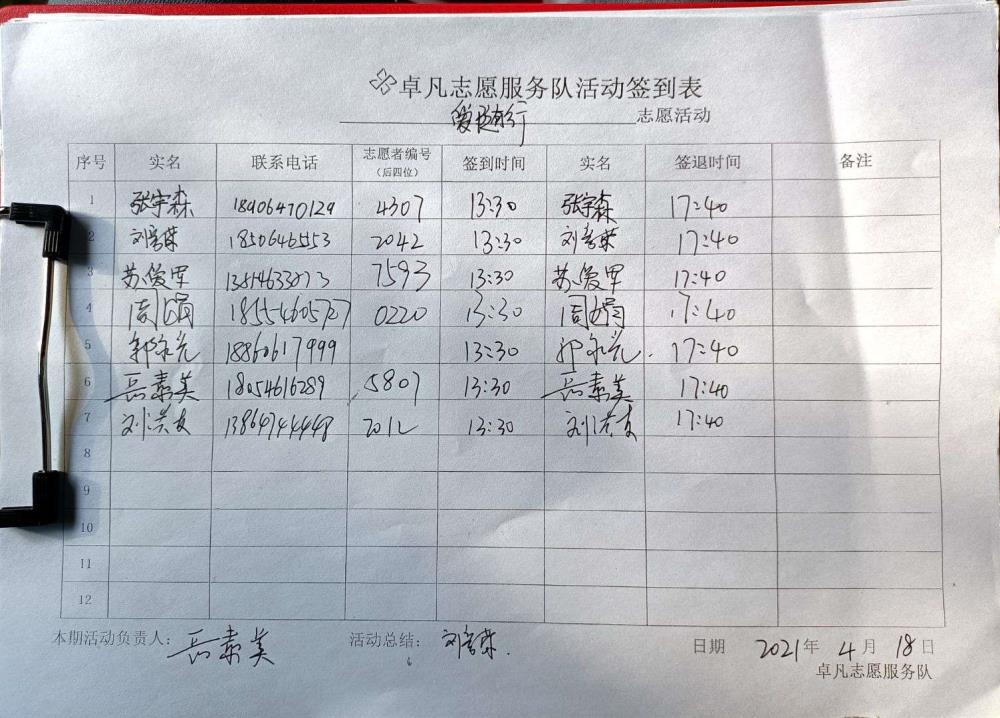 卓凡志愿服务队活动签到表
志愿活动
序号 实名 联系电话 志愿者编号（后四位） 签到时间 实名 签退时间 备注
1 张宇森 18906470129 4307 13:30 张宇森 17:40
2 2042 13:30 17:40
3 苏爱军 7593 13:30 苏爱军 17:40
4 18554605727 0220 13:30 17:40
5 郭永光 18860617999 13:30 郭永光 17:40
6 岳素美 18054616289 5807 13:30 岳素美 17:40
7 刘洪友 13864744448 2012 13:30 刘洪友 17:40
8
9
10
11
12
本期活动负责人: 岳素美 活动总结: 日期 2021年 4月 18日
卓凡志愿服务队